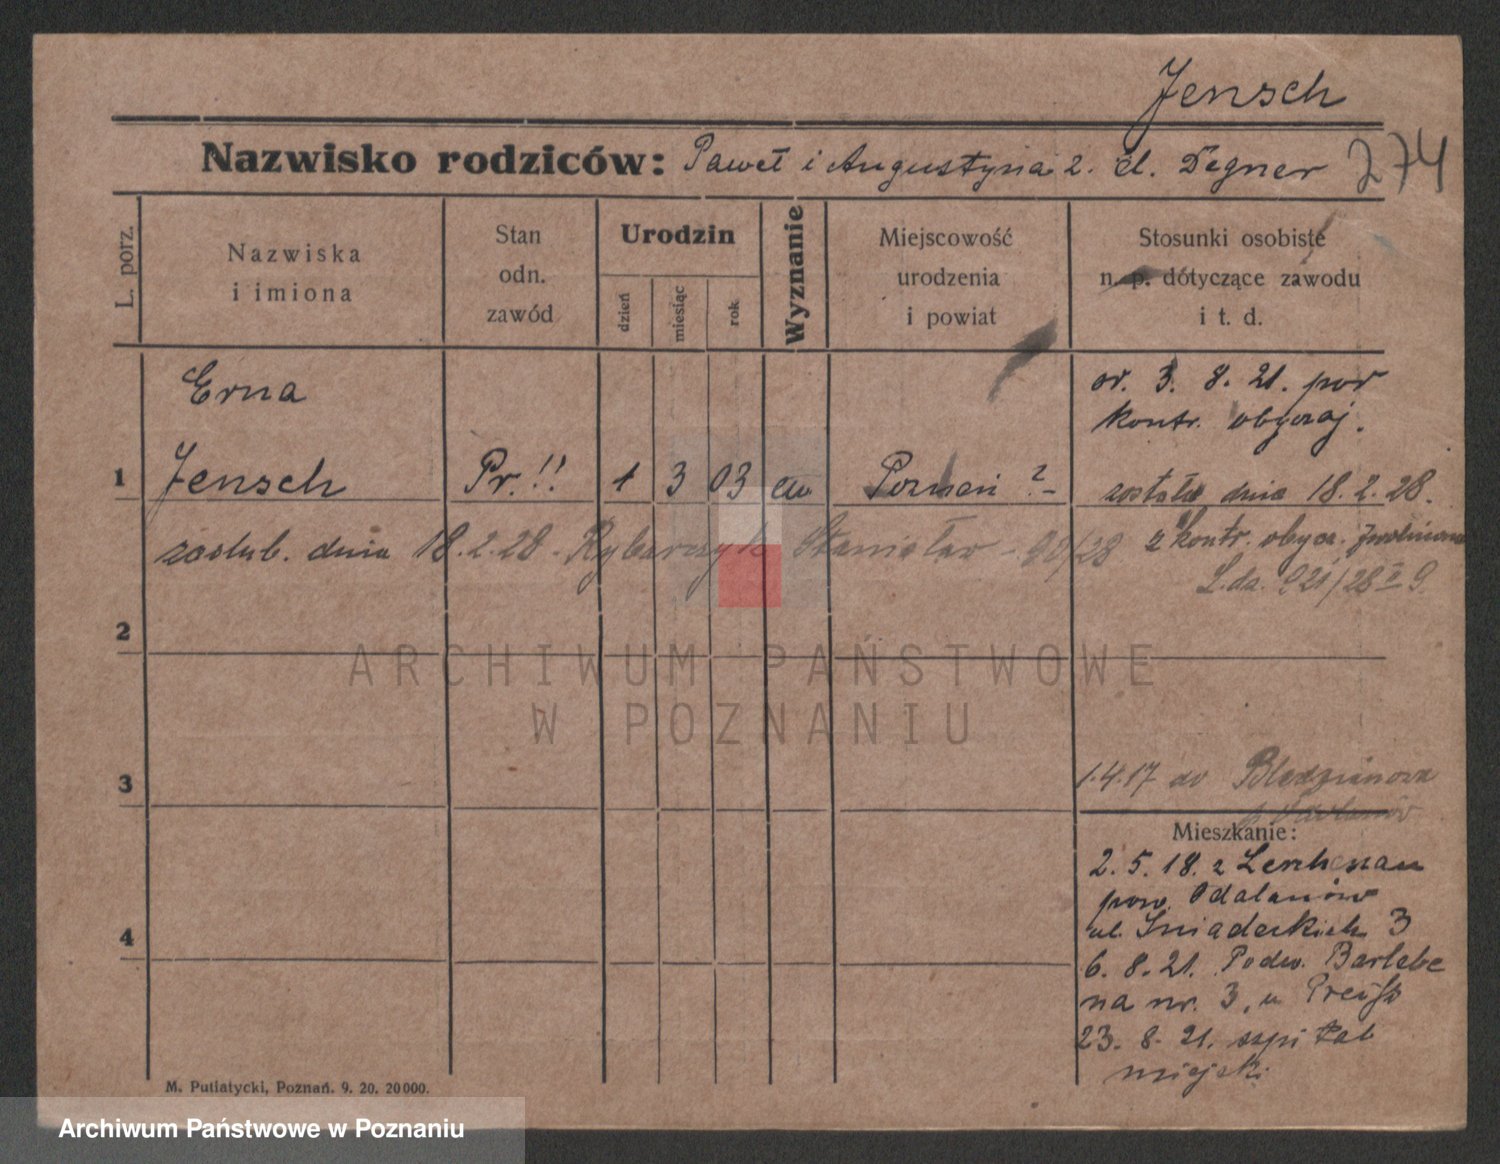 Jensch
Nazwisko rodziców: Paweł i Augustyna z. d. Degner 274
L. porz.
Nazwiska
i imiona
Stan
odn.
zawód
Urodzin
dzień
miesiąc
rok
Wyznanie
Miejscowość
urodzenia
i powiat
Stosunki osobiste
n. p. dótyczące zawodu
i t. d.
Erna
1 Jensch Pr.!! 1 3 03 ew Poznań ?
3. 8. 21. por
kontr. obyczaj.
została dnia 18.2.28.
z kontr. obycz. zwolniona
L.dz. 921/28
zaślub. dnia 18.2.28 - Rybarczyk Stanisław - 90/28
2
3
4
1.4.17 do
Mieszkanie:
2. 5. 18. z
pow. Odalanów
ul. Śniadeckich 3
6. 8. 21. Podw. Barlebe
na nr. 3, u Preuß
23. 8. 21. szpital
miejski
M. Putiatycki, Poznań. 9. 20. 20000.
ARCHIWUM PAŃSTWOWE
W POZNANIU
Archiwum Państwowe w Poznaniu